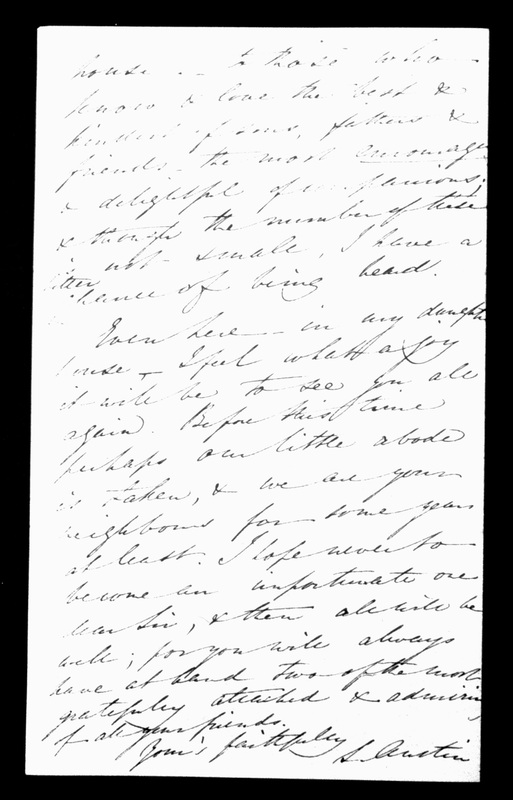 house - to those who
know & love the best &
kindest of sons, fathers &
friends - the most encourag
& delightful of companions;
& though the number of these
is not small, I have a
better
chance of being heard.
Even here - in my daughter
house - I feel what a joy
it will be to see you all
again. Before this time
perhaps our little abode
is taken, & we are your
neighbours for some years
at least. I hope never to
become an importunate one
dear Sir, & then all will be
well; for you will always
have at hand two of the most
gratefully attached & admiring
of all your friends.
Your's faithfully S. Austin